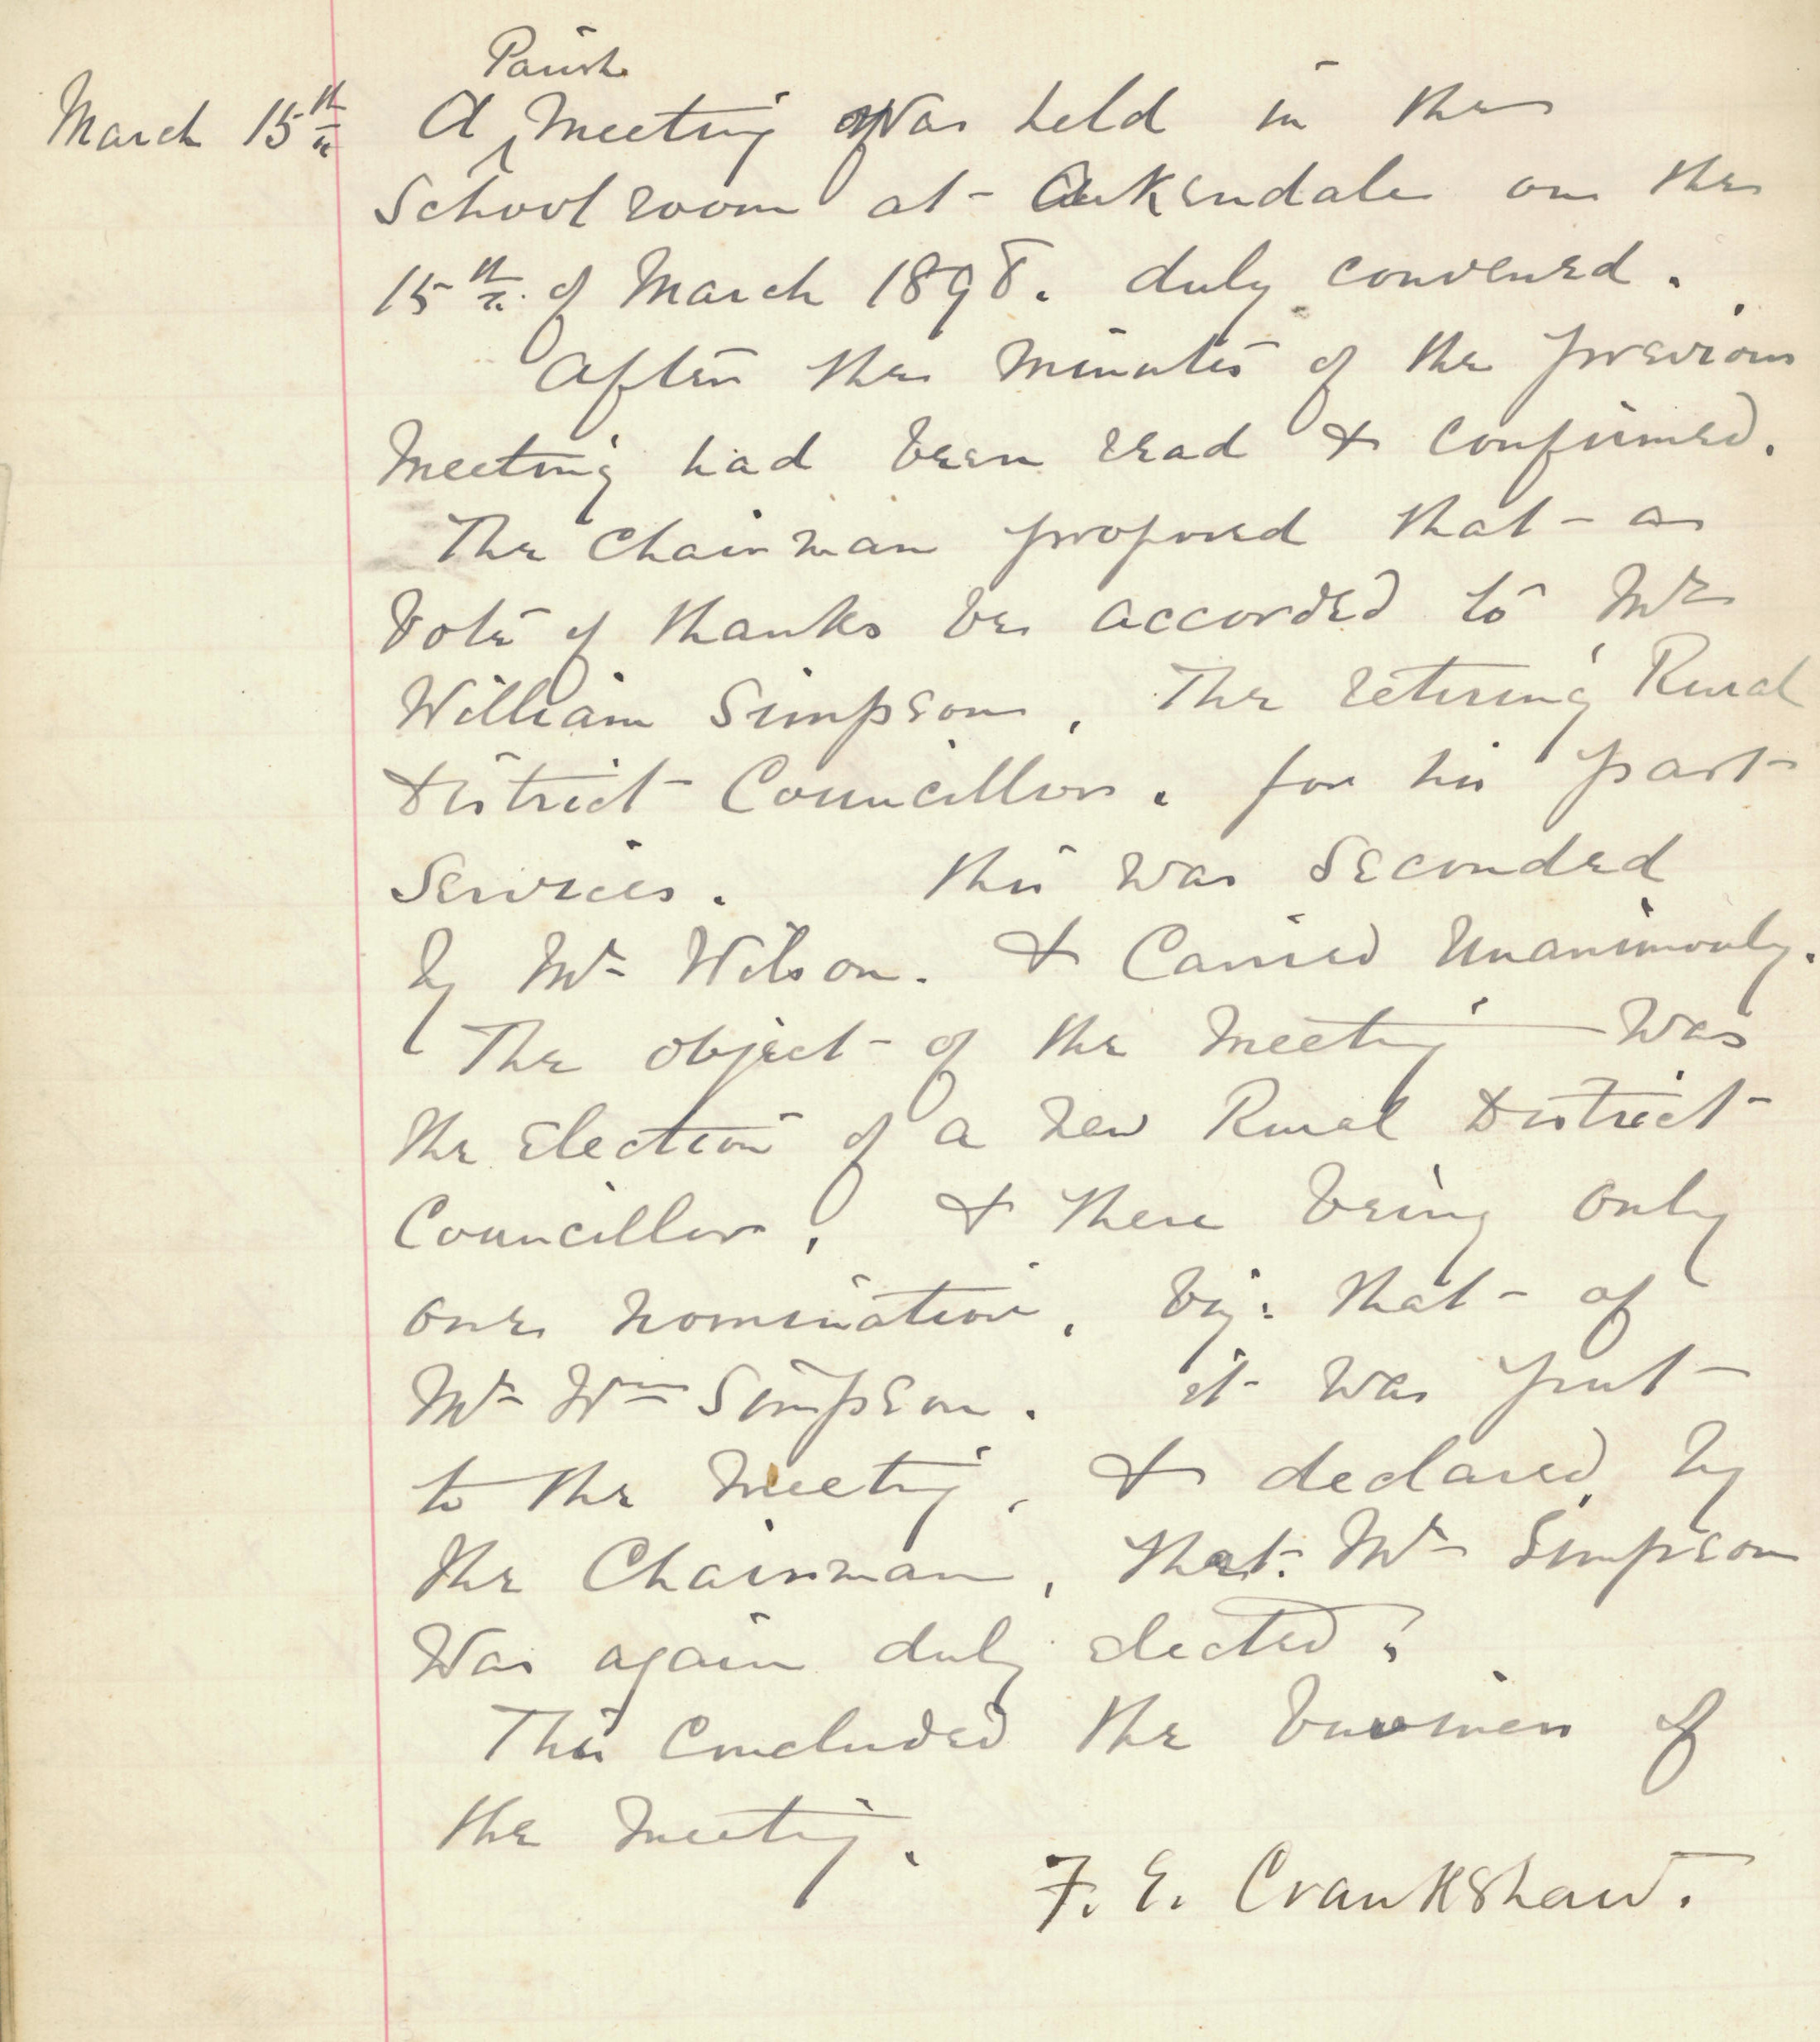 Parish
March 15th A Meeting was held in the
Schoolroom at Arkendale on the
15th of March 1898. duly convened.
After the minutes of the previous
Meeting had been read & confirmed.
The Chairman proposed that a
Vote of thanks be accorded to Mr
William Simpson, The retiring Rural
District Councillor. for his past
Services. this was Seconded
by Mr Wilson. & Carried Unanimously.
The object of the Meeting was
the Election of a new Rural District
Councillor, & there being only
one nomination, viz: that of
Mr Wm Simpson. it was put
to the Meeting, & declared, by
the Chairman, that Mr Simpson
Was again duly elected.
This Concluded the business of
the Meeting.
F. E. Crankshaw.